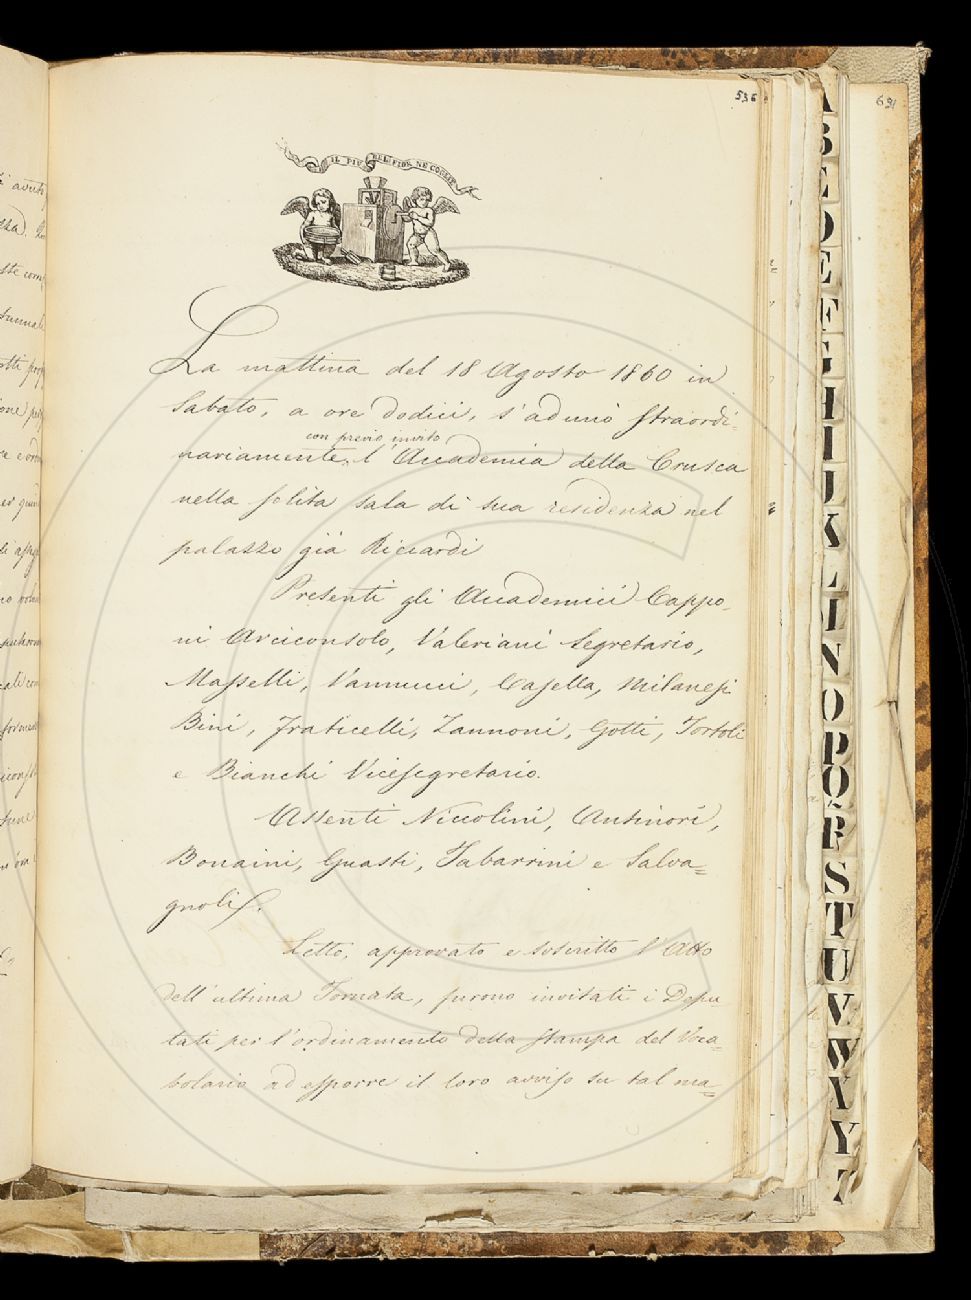 536
691
IL PIÙ BEL FIOR NE COGLIE
La mattina del 18 Agosto 1860 in
Sabato, a ore dodici, s'adunò straordi-
con previo invito
nariamente, l'Accademia della Crusca
nella solita sala di sua residenza nel
palazzo già Riccardi
Presenti gli Accademici Cappo-
ni Arciconsolo, Valeriani Segretario,
Masselli, Vannucci, Casella, Milanesi
Bini, Fraticelli, Zannoni, Gotti, Tortoli
e Bianchi Vicesegretario.
Assenti Niccolini, Antinori,
Bonaini, Guasti, Tabarrini e Salva=
gnoli.
Letto, approvato e soscritto l'Atto
dell'ultima Tornata, furono invitati i Depu
tati per l'ordinamento della stampa del Voca=
bolario ad esporre il loro avviso su tal ma=
A
B
C
D
E
F
G
H
I
J
K
L
M
N
O
P
Q
R
S
T
U
V
W
X
Y
Z